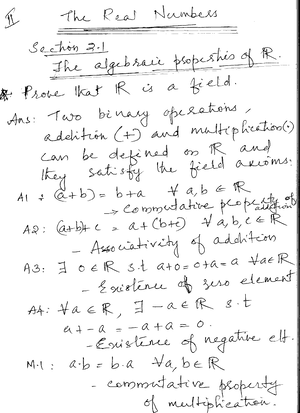 II The Real Numbers
Section 2.1
The algebraic properties of ℝ.
* Prove that ℝ is a field.
Ans: Two binary operations,
addition (+) and multiplication(·)
can be defined on ℝ and
they satisfy the field axioms.
A1 : (a+b) = b+a ∀ a,b ∈ ℝ
→ Commutative property of
addition
A2: (a+b)+c = a+(b+c) ∀ a,b,c ∈ ℝ
- Associativity of addition
A3: ∃ 0 ∈ ℝ s.t a+0=0+a=a ∀a∈ℝ
- Existence of zero element
A4: ∀a ∈ ℝ, ∃ -a ∈ ℝ s.t
a+-a = -a+a = 0.
- Existence of negative elt.
M.1 : a.b = b.a ∀a,b ∈ ℝ
- commutative property
of multiplication.